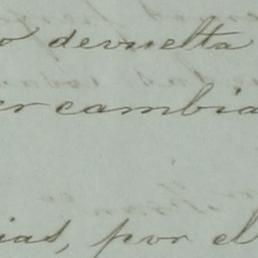 o devuelta
er cambia
ias, por el